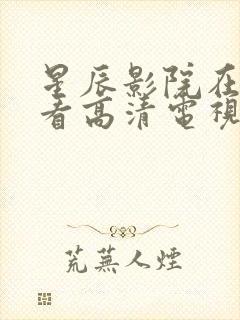 星辰影院在
看高清電視
荒蕪人煙